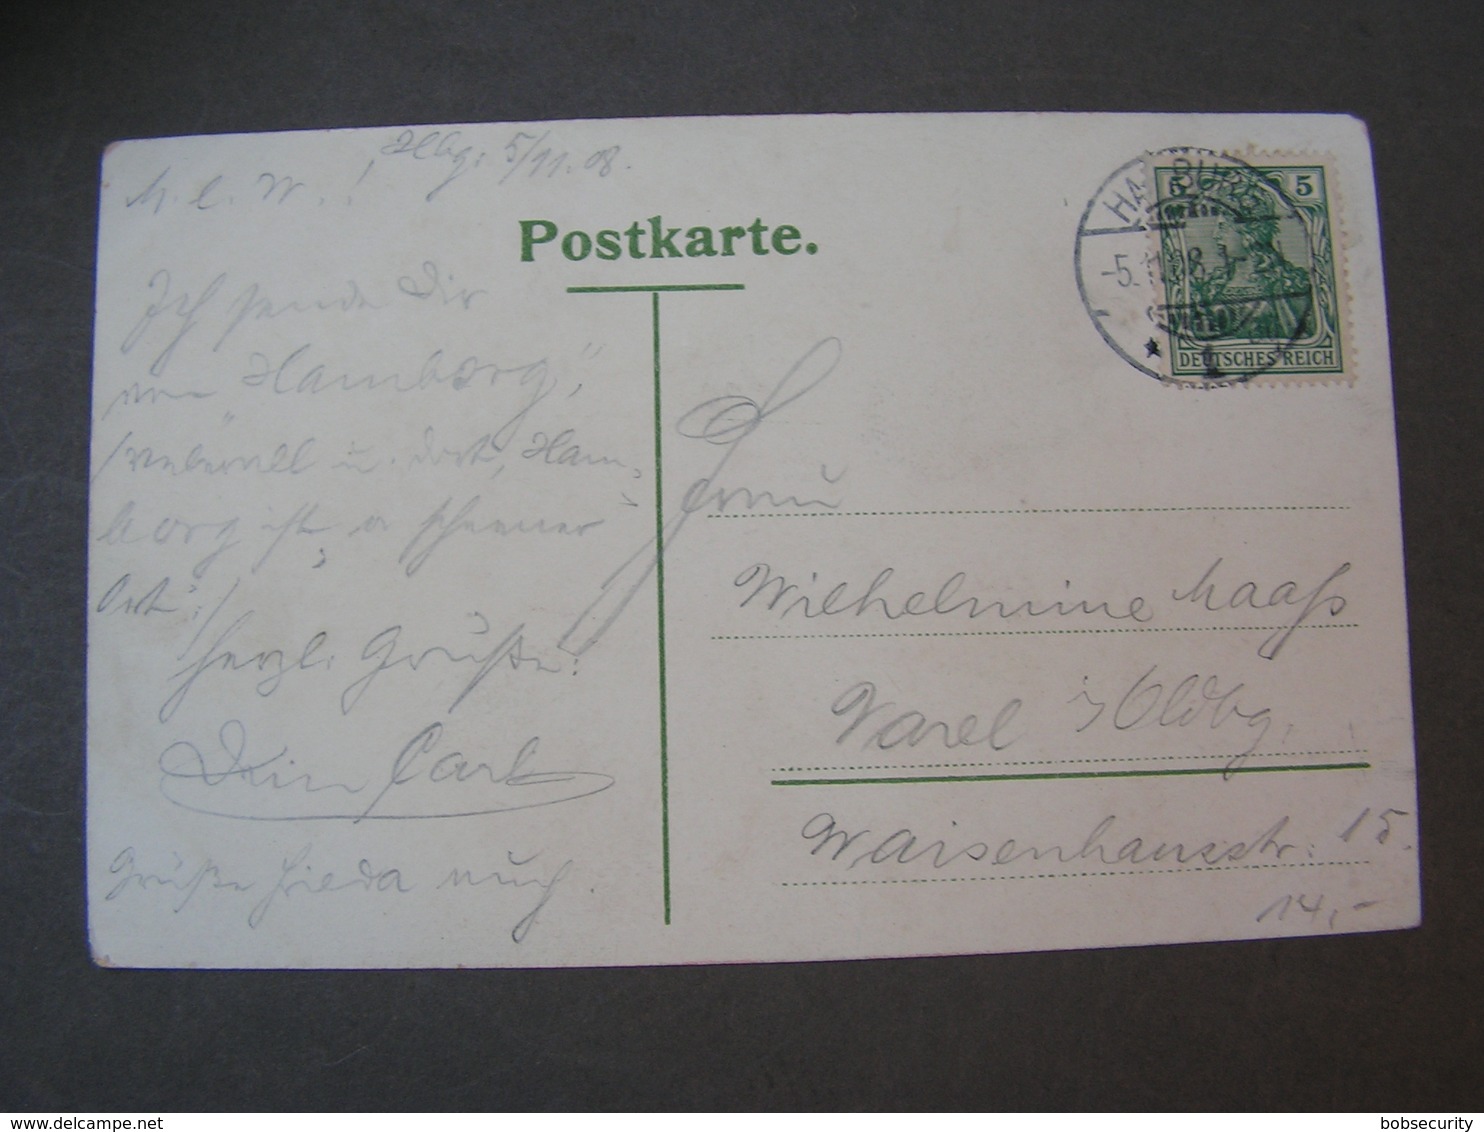 Hbg. 5/11.08.
M. l. W.!
Postkarte.
Ich sende Dir
von „Hamborg“,
/überall u. dort, Ham-
borg ist, a scheener
Ort“:/
herzl. Grüße!
Dein Carl
Grüße Frieda auch.
HAMBURG
-5.11.08.3-
* 1
5 5
DEUTSCHES REICH
Frau
Wilhelmine Maaß
Varel i/Oldbg.
Waisenhausstr. 15.
14,-
bobsecurity